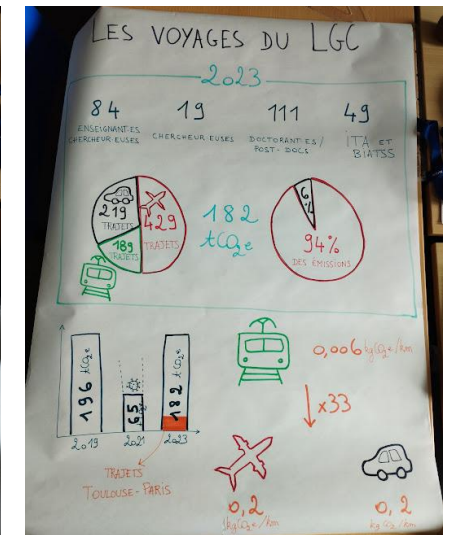 LES VOYAGES DU LGC
2023
84
ENSEIGNANT·ES
CHERCHEUR·EUSES
19
CHERCHEUR·EUSES
111
DOCTORANT·ES /
POST-DOCS
49
ITA ET
BIATSS
219
TRAJETS
429
TRAJETS
189
TRAJETS
182
tCO2e
6
%
94%
DES ÉMISSIONS
196 tCO2e
65
182 tCO2e
2019
2021
2023
TRAJETS
TOULOUSE-PARIS
0,006 kgCO2e/km
x33
0,2
kgCO2e/km
0,2
kgCO2e/km